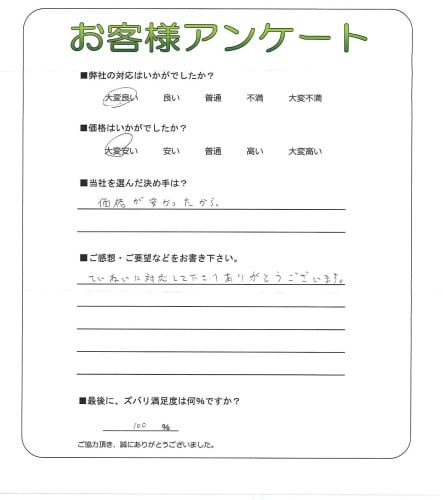 お客様アンケート
■弊社の対応はいかがでしたか？
大変良い 良い 普通 不満 大変不満
■価格はいかがでしたか？
大変安い 安い 普通 高い 大変高い
■当社を選んだ決め手は？
価格が安かったから。
■ご感想・ご要望などをお書き下さい。
ていねいに対応して下さりありがとうございます。
■最後に、ズバリ満足度は何%ですか？
100 %
ご協力頂き、誠にありがとうございました。